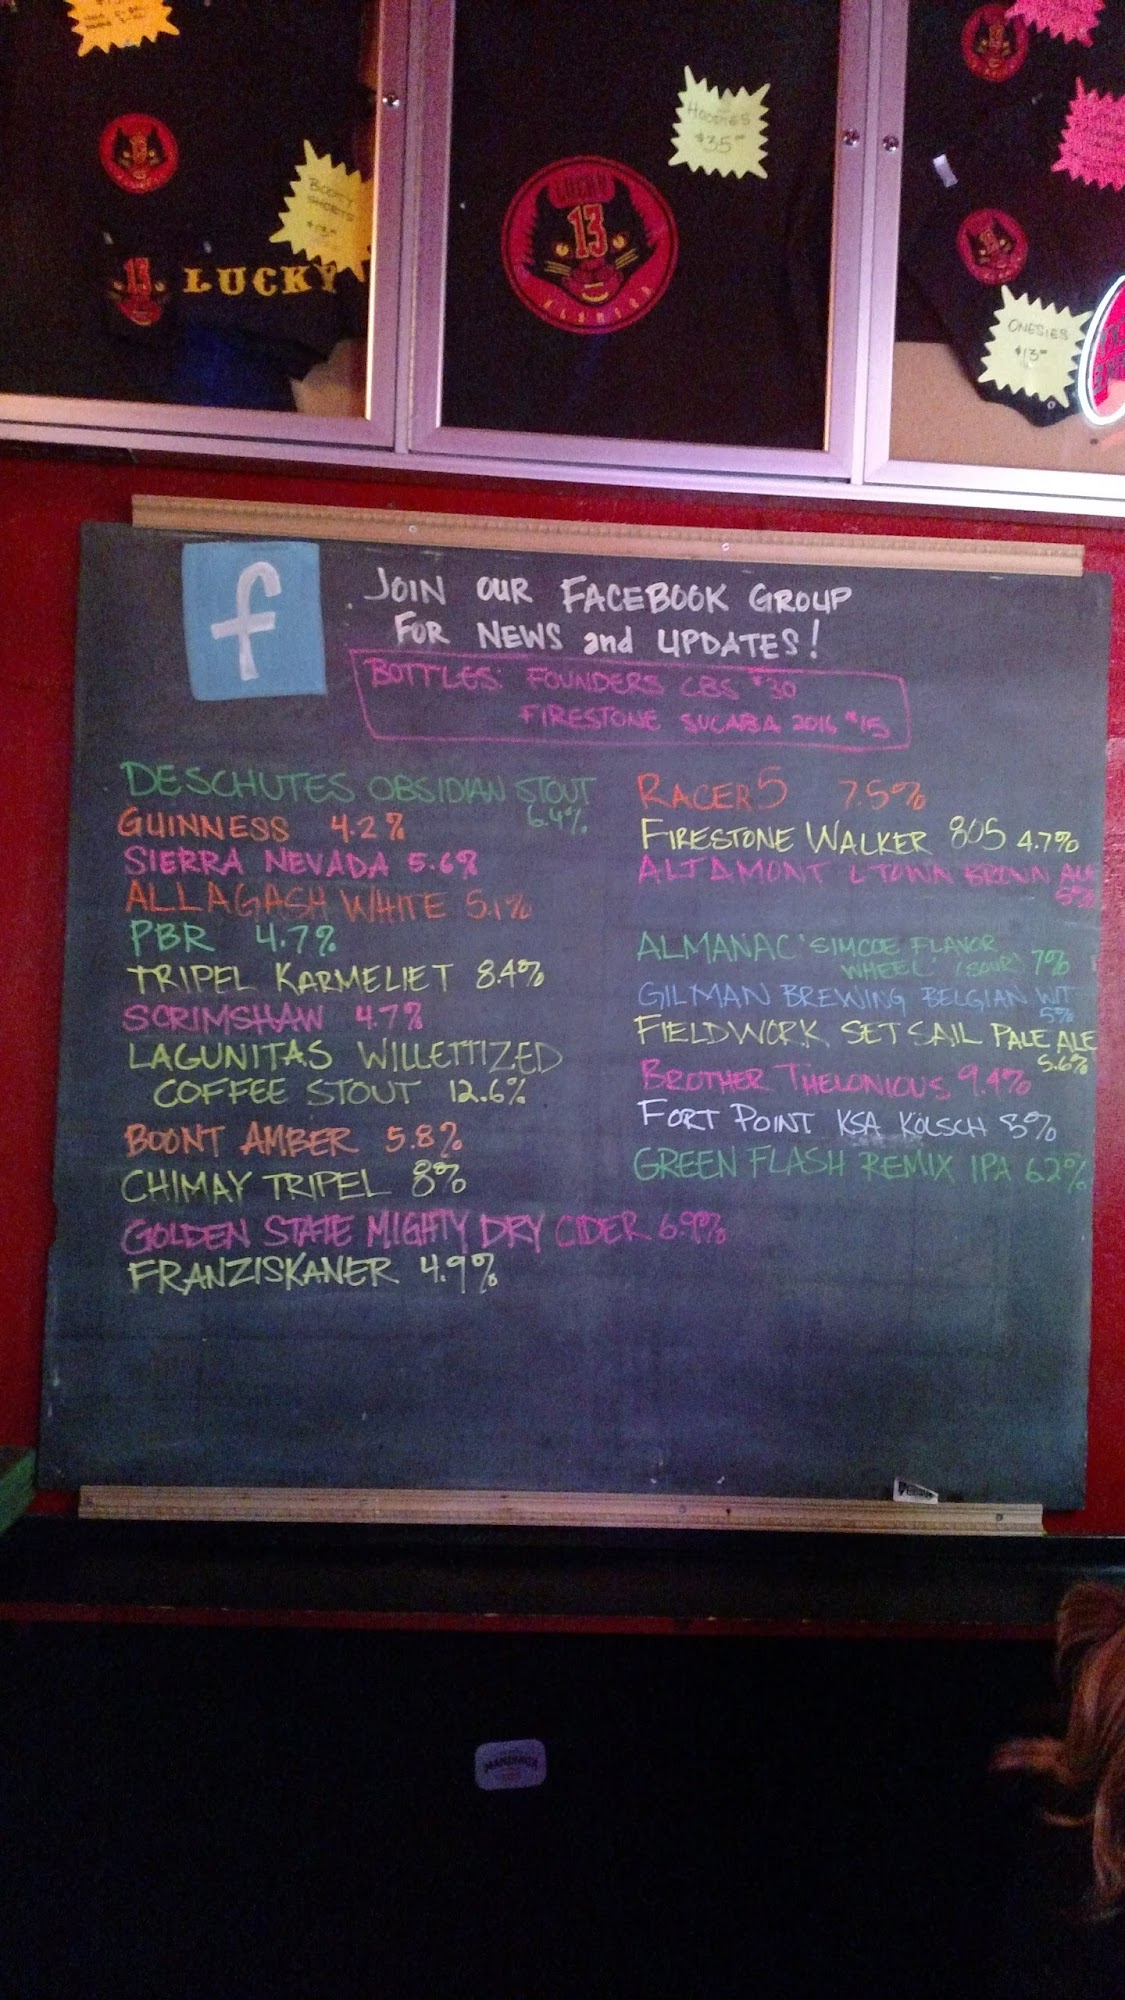 BOOTY
SHORTS
$13.00
HOODIES
$35.00
13
LUCKY
LUCKY
13
ALAMEDA
ONESIES
$13.00
f
JOIN OUR FACEBOOK GROUP
FOR NEWS and UPDATES!
BOTTLES: FOUNDERS CBS $30
FIRESTONE SUCABA 2016 $15
DESCHUTES OBSIDIAN STOUT
6.4%
GUINNESS 4.2%
SIERRA NEVADA 5.6%
ALLAGASH WHITE 5.1%
PBR 4.7%
TRIPEL KARMELIET 8.4%
SCRIMSHAW 4.7%
LAGUNITAS WILLETTIZED
COFFEE STOUT 12.6%
BOONT AMBER 5.8%
CHIMAY TRIPEL 8%
GOLDEN STATE MIGHTY DRY CIDER 6.9%
FRANZISKANER 4.9%
RACER 5 7.5%
FIRESTONE WALKER 805 4.7%
ALTAMONT L TOWN BROWN ALE
5%
ALMANAC 'SIMCOE FLAVOR
WHEEL' (SOUR) 7%
GILMAN BREWING BELGIAN WIT
5%
FIELDWORK SET SAIL PALE ALE
5.6%
BROTHER THELONIOUS 9.4%
FORT POINT KSA KÖLSCH 5%
GREEN FLASH REMIX IPA 6.2%